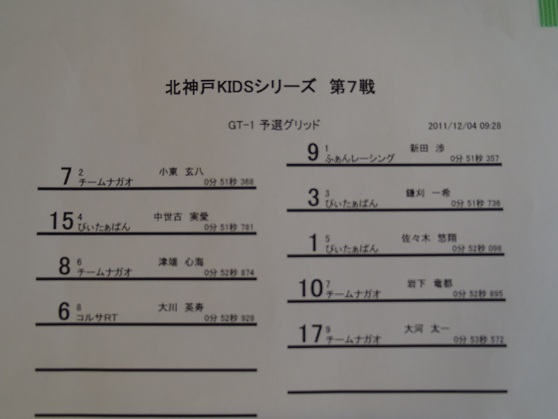 北神戸KIDSシリーズ 第7戦
GT-1 予選グリッド
2011/12/04 09:28
9 1 新田 渉
ふぁんレーシング 0分 51秒 357
7 2 小東 玄八
チームナガオ 0分 51秒 368
3 3 鎌刈 一希
びぃたぁぱん 0分 51秒 736
15 4 中世古 実愛
びぃたぁぱん 0分 51秒 781
1 5 佐々木 悠翔
びぃたぁぱん 0分 52秒 098
8 6 津端 心海
チームナガオ 0分 52秒 874
10 7 岩下 竜都
チームナガオ 0分 52秒 895
6 8 大川 英寿
コルサRT 0分 52秒 928
17 9 大河 太一
チームナガオ 0分 53秒 572